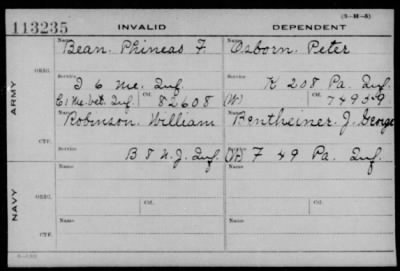 (3-M-5)
113235 INVALID DEPENDENT
ARMY
ORIG.
Name Bean. Phineas F. Name Osborn. Peter
Service D 6 Me. Inf. Service K 208 Pa. Inf.
E1 Me. Vet. Inf. Ctf. 82608 (W) Ctf. 74959
CTF.
Name Robinson. William Name Bentheiner. J. George
Service B 8 N. J. Inf. Service F 49 Pa. Inf.
NAVY
ORIG.
Name Name
Ctf. Ctf.
CTF.
Name Name